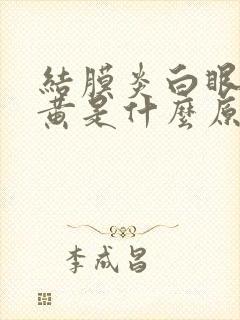 結膜炎白眼
黃是什麼原
李成昌